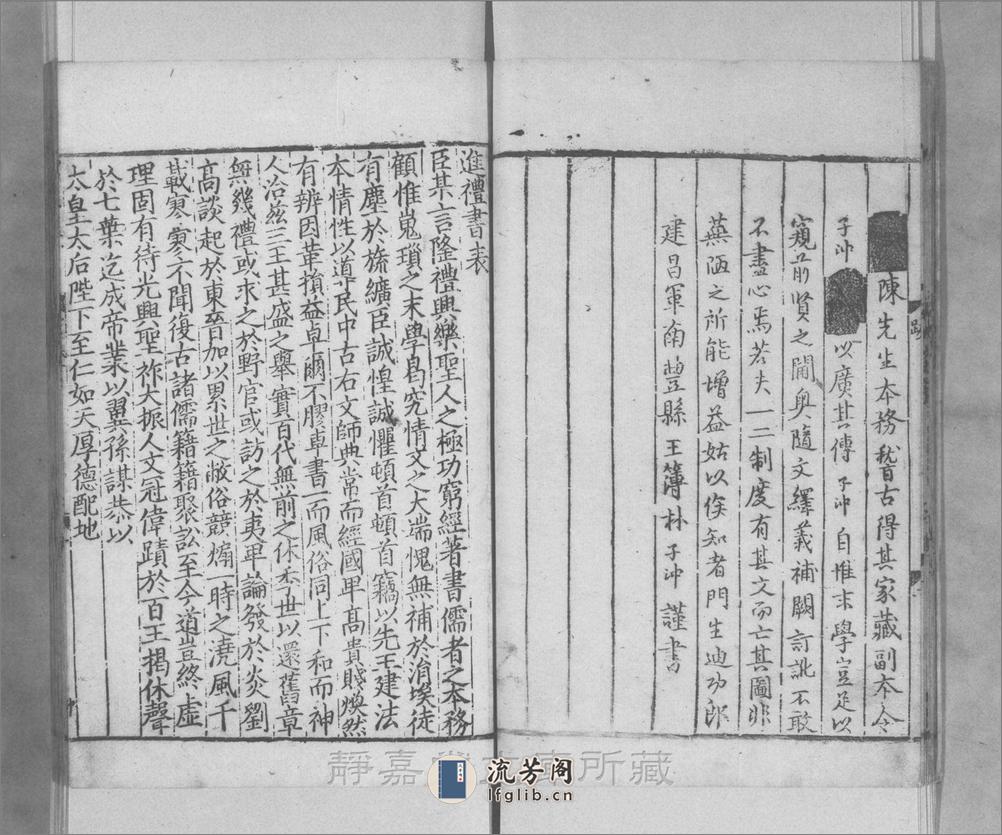 陳先生本務稽古得其家藏副本令
子沖以廣其傳子沖自惟末學豈足以
窺前賢之閫奧隨文繹義補闕訂訛不敢
不盡心焉若夫一二制度有其文而亡其圖非
蕪陋之所能增益姑以俟知者門生迪功郎
建昌軍南豐縣主簿林子沖謹書
跋
進禮書表
臣某言隆禮興樂聖人之極功窮經著書儒者之本務
顧惟嵬瑣之末學曷究情文之大端愧無補於涓埃徒
有塵於旒纊臣誠惶誠懼頓首頓首竊以先王建法
本情性以導民中古右文師典常而經國卑高貴賤煥然
有辨因革損益卓爾不膠車書一而風俗同上下和而神
人洽茲三王甚盛之舉實百代無前之休季世以還舊章
無幾禮或求之於野官或訪之於夷卑論發於炎劉
高談起於東晉加以累世之敝俗競煽一時之澆風千
載寥寥不聞復古諸儒籍籍聚訟至今道豈終虛
理固有待光興聖祚大振人文冠偉蹟於百王揭休聲
於七葉迄成帝業以翼孫謀恭以
太皇太后陛下至仁如天厚德配地
靜嘉堂文庫所藏
流芳阁
lfglib.cn